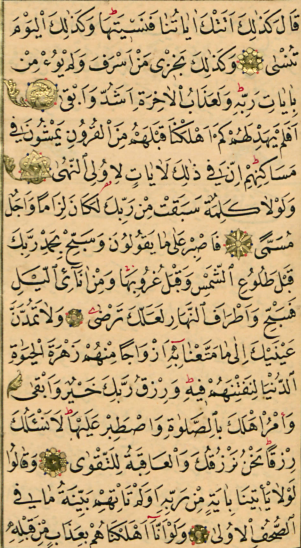 قَالَ كَذَٰلِكَ اَتَتْكَ اٰيَاتُنَا فَنَسٖيتَهَا وَكَذَٰلِكَ الْيَوْمَ
تُنْسٰى وَكَذَٰلِكَ نَجْزٖى مَنْ اَسْرَفَ وَلَمْ يُؤْمِنْ
بِاٰيَاتِ رَبِّهٖ وَلَعَذَابُ الْاٰخِرَةِ اَشَدُّ وَاَبْقٰى
اَفَلَمْ يَهْدِ لَهُمْ كَمْ اَهْلَكْنَا قَبْلَهُمْ مِنَ الْقُرُونِ يَمْشُونَ فٖى
مَسَاكِنِهِمْ اِنَّ فٖى ذٰلِكَ لَاٰيَاتٍ لِاُولِى النُّهٰى
وَلَوْلَا كَلِمَةٌ سَبَقَتْ مِنْ رَبِّكَ لَكَانَ لِزَامًا وَاَجَلٌ
مُسَمًّى فَاصْبِرْ عَلٰى مَا يَقُولُونَ وَسَبِّحْ بِحَمْدِ رَبِّكَ
قَبْلَ طُلُوعِ الشَّمْسِ وَقَبْلَ غُرُوبِهَا وَمِنْ اٰنَآئِ الَّيْلِ
فَسَبِّحْ وَاَطْرَافَ النَّهَارِ لَعَلَّكَ تَرْضٰى وَلَا تَمُدَّنَّ
عَيْنَيْكَ اِلٰى مَا مَتَّعْنَا بِهٖ اَزْوَاجًا مِنْهُمْ زَهْرَةَ الْحَيٰوةِ
الدُّنْيَا لِنَفْتِنَهُمْ فٖيهِ وَرِزْقُ رَبِّكَ خَيْرٌ وَاَبْقٰى
وَأْمُرْ اَهْلَكَ بِالصَّلٰوةِ وَاصْطَبِرْ عَلَيْهَا لَا نَسْـَٔلُكَ
رِزْقًا نَحْنُ نَرْزُقُكَ وَالْعَاقِبَةُ لِلتَّقْوٰى وَقَالُوا
لَوْلَا يَأْتٖينَا بِاٰيَةٍ مِنْ رَبِّهٖ اَوَلَمْ تَأْتِهِمْ بَيِّنَةُ مَا فِى
الصُّحُفِ الْاُولٰى وَلَوْ اَنَّا اَهْلَكْنَاهُمْ بِعَذَابٍ مِنْ قَبْلِهٖ